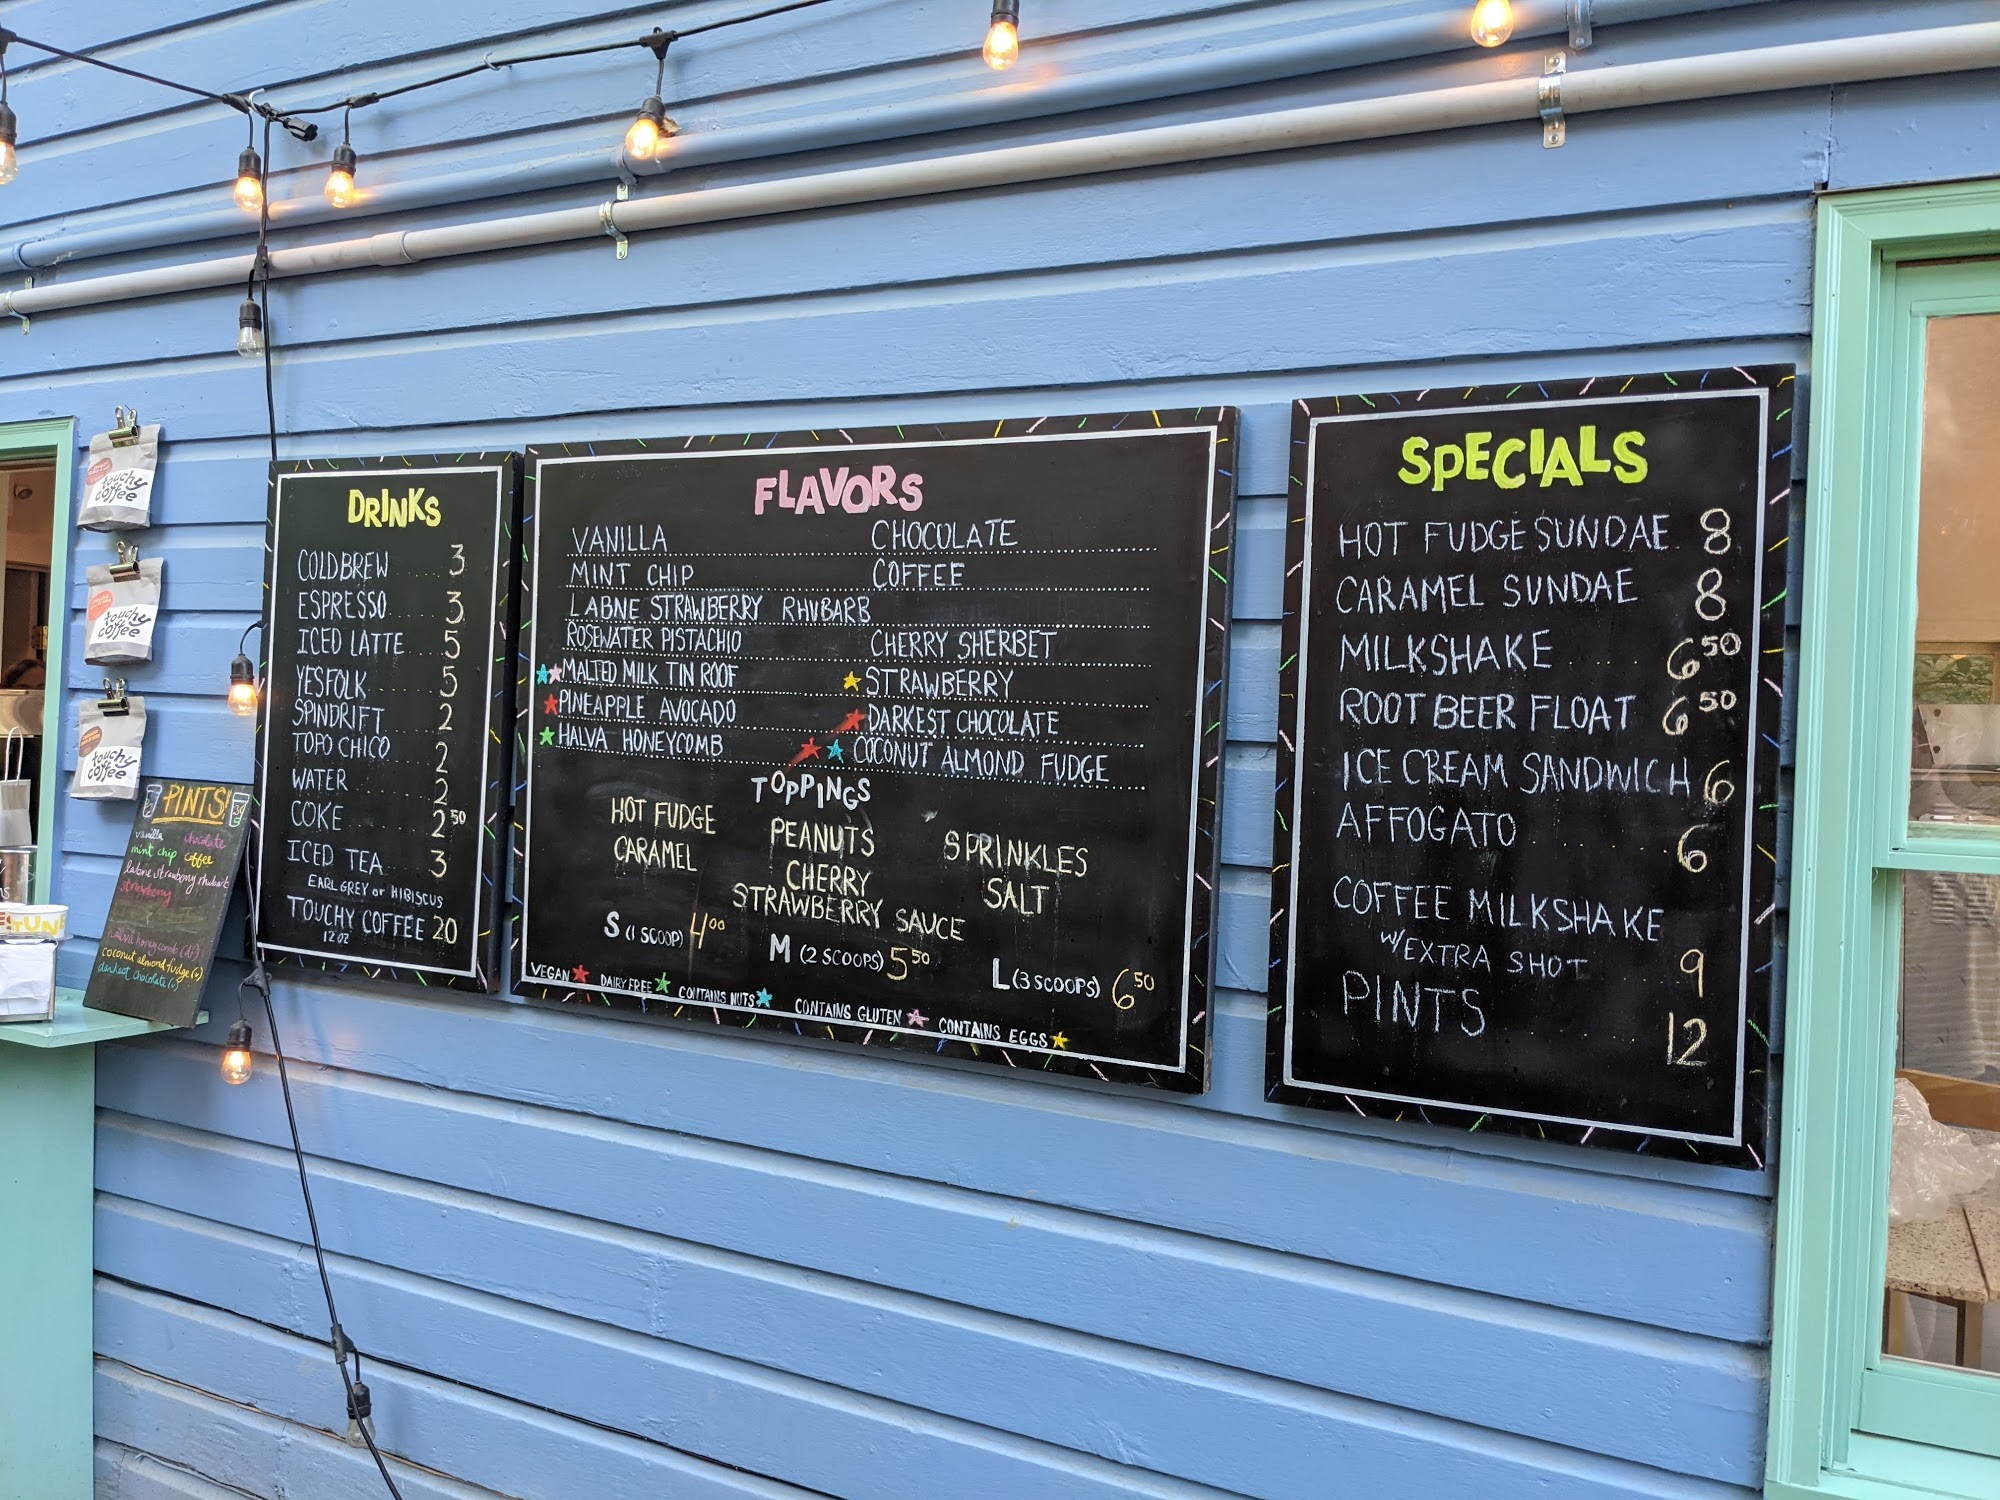 touchy coffee
touchy coffee
touchy coffee
PINTS!
vanilla chocolate
mint chip coffee
labne strawberry rhubarb
strawberry
halva honeycomb (df)
coconut almond fudge (v)
darkest chocolate (v)
DRINKS
COLD BREW 3
ESPRESSO 3
ICED LATTE 5
YESFOLK 5
SPINDRIFT 2
TOPO CHICO 2
WATER 2
COKE 2 50
ICED TEA 3
EARL GREY or HIBISCUS
TOUCHY COFFEE 20
12 OZ
FLAVORS
VANILLA CHOCOLATE
MINT CHIP COFFEE
LABNE STRAWBERRY RHUBARB
ROSEWATER PISTACHIO CHERRY SHERBET
MALTED MILK TIN ROOF STRAWBERRY
PINEAPPLE AVOCADO DARKEST CHOCOLATE
HALVA HONEYCOMB COCONUT ALMOND FUDGE
TOPPINGS
HOT FUDGE PEANUTS SPRINKLES
CARAMEL CHERRY SALT
STRAWBERRY SAUCE
S (1 SCOOP) 4 00 M (2 SCOOPS) 5 50 L (3 SCOOPS) 6 50
VEGAN DAIRY FREE CONTAINS NUTS CONTAINS GLUTEN CONTAINS EGGS
SPECIALS
HOT FUDGE SUNDAE 8
CARAMEL SUNDAE 8
MILKSHAKE 6 50
ROOT BEER FLOAT 6 50
ICE CREAM SANDWICH 6
AFFOGATO 6
COFFEE MILKSHAKE
W/ EXTRA SHOT 9
PINTS 12